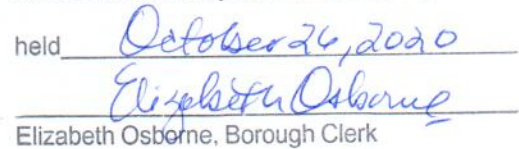 held October 26, 2020
Elizabeth Osborne
Elizabeth Osborne, Borough Clerk